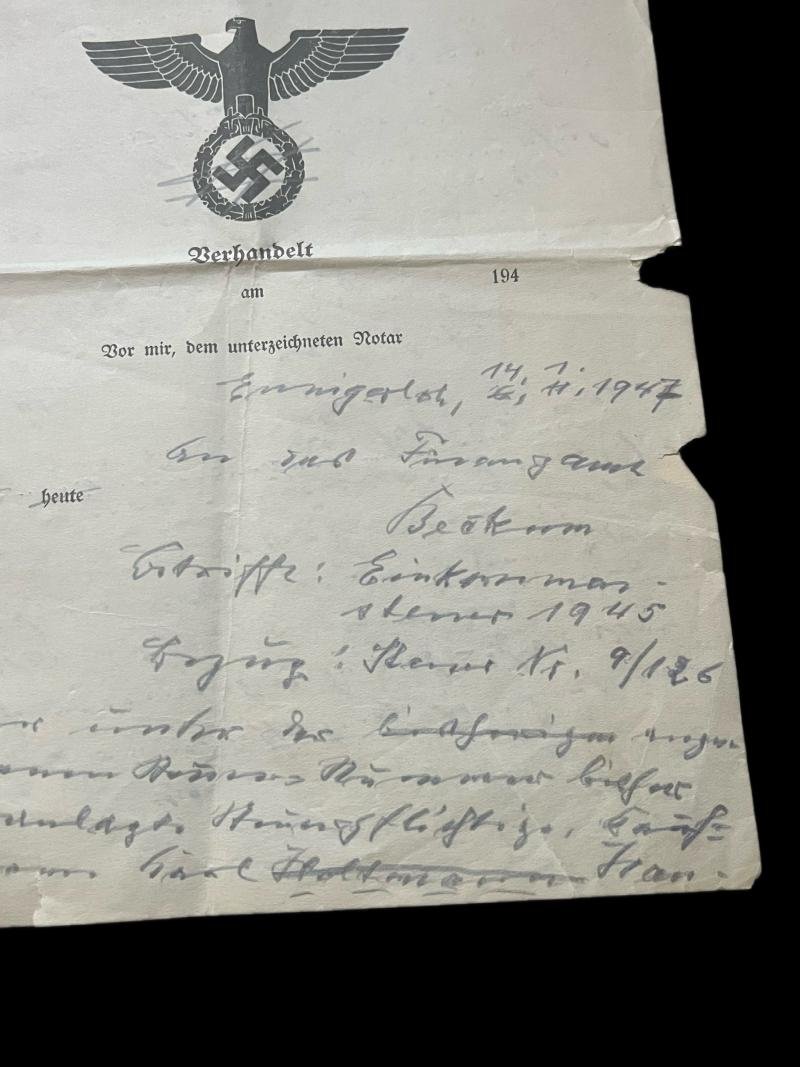 Verhandelt
am 194
Vor mir, dem unterzeichneten Notar
Ennigerloh, 14. 1. 1947
An das Finanzamt
heute
Beckum
Betrifft: Einkommen-
steuer 1945
Bezug: Steuer Nr. 9/126
unter der bisherigen
Steuer-Nummer bisher
Steuerpflichtige, Kauf-
Karl Holtmann